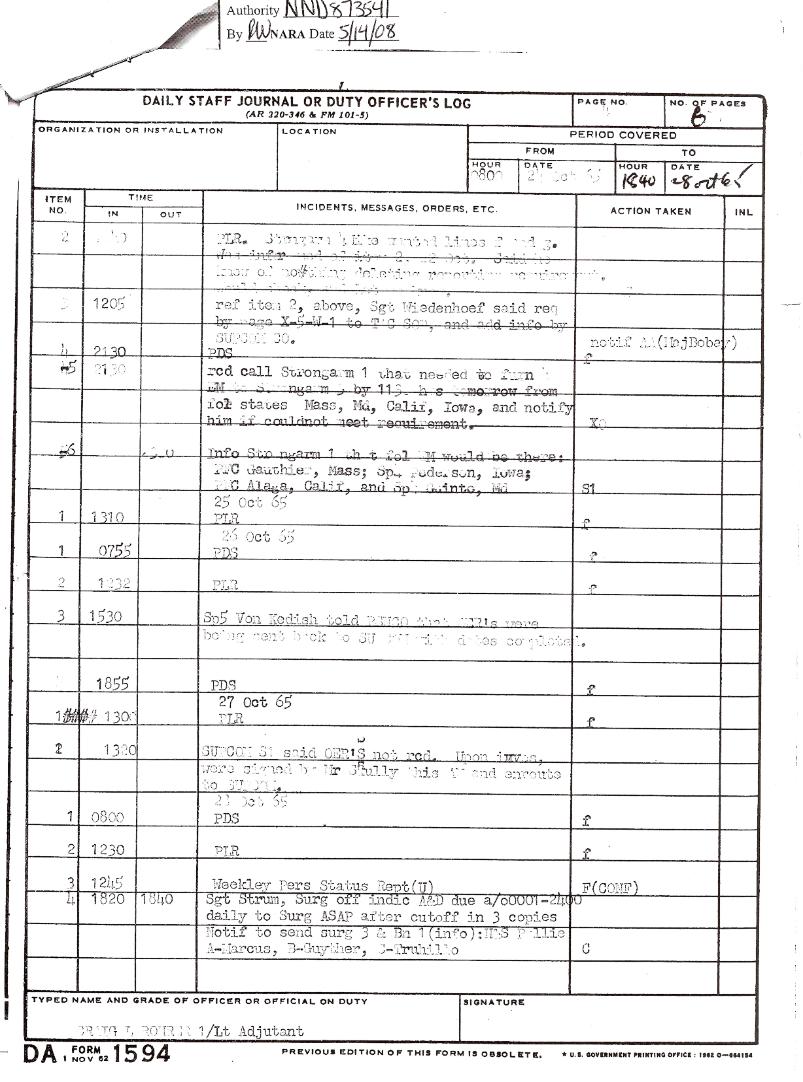 Authority NND873541
By NARA Date 5/14/08
DAILY STAFF JOURNAL OR DUTY OFFICER'S LOG
(AR 220-346 & FM 101-5)
PAGE NO.
NO. OF PAGES
6
ORGANIZATION OR INSTALLATION
LOCATION
PERIOD COVERED
FROM
TO
HOUR
0800
DATE
Oct 65
HOUR
1840
DATE
28 Oct 65
ITEM NO.
TIME
IN
OUT
INCIDENTS, MESSAGES, ORDERS, ETC.
ACTION TAKEN
INL
2 PLR.
3 1205 ref item 2, above, Sgt Wiedenhoef said req
by X-5-W-1 to and add info by
notif (MajBobay)
4 2130 PDS f
5 2130 rcd call Strongarm 1 that needed to furn
by tomorrow from
fol states Mass, Md, Calif, Iowa, and notify
him if couldnot meet requirement. XO
6 Info Strongarm 1 that fol EM would be there:
PFC Gauthier, Mass; Iowa;
PFC Alaga, Calif, and Md S1
25 Oct 65
1 1310 PLR f
26 Oct 65
1 0755 PDS f
2 1232 PLR f
3 1530 Sp5 Von Kodish told that OER's were
being sent back to dates completed.
1855 PDS f
27 Oct 65
1 1300 PLR f
2 1320 SUPCOM S1 said OER'S not rcd. Upon
were signed by Mr Scully this and enroute
to
28 Oct 65
1 0800 PDS f
2 1230 PLR f
3 1245 Weekley Pers Status Rept(U) F(CONF)
4 1820 1840 Sgt Strum, Surg off indic A&D due a/o0001-2400
daily to Surg ASAP after cutoff in 3 copies
Notif to send surg 3 & Bn 1(info):
A-Marcus, B-Guyther, C-Truhillo C
TYPED NAME AND GRADE OF OFFICER OR OFFICIAL ON DUTY
SIGNATURE
1/Lt Adjutant
DA FORM 1 NOV 62 1594
PREVIOUS EDITION OF THIS FORM IS OBSOLETE.
★ U.S. GOVERNMENT PRINTING OFFICE : 1962 O—664154